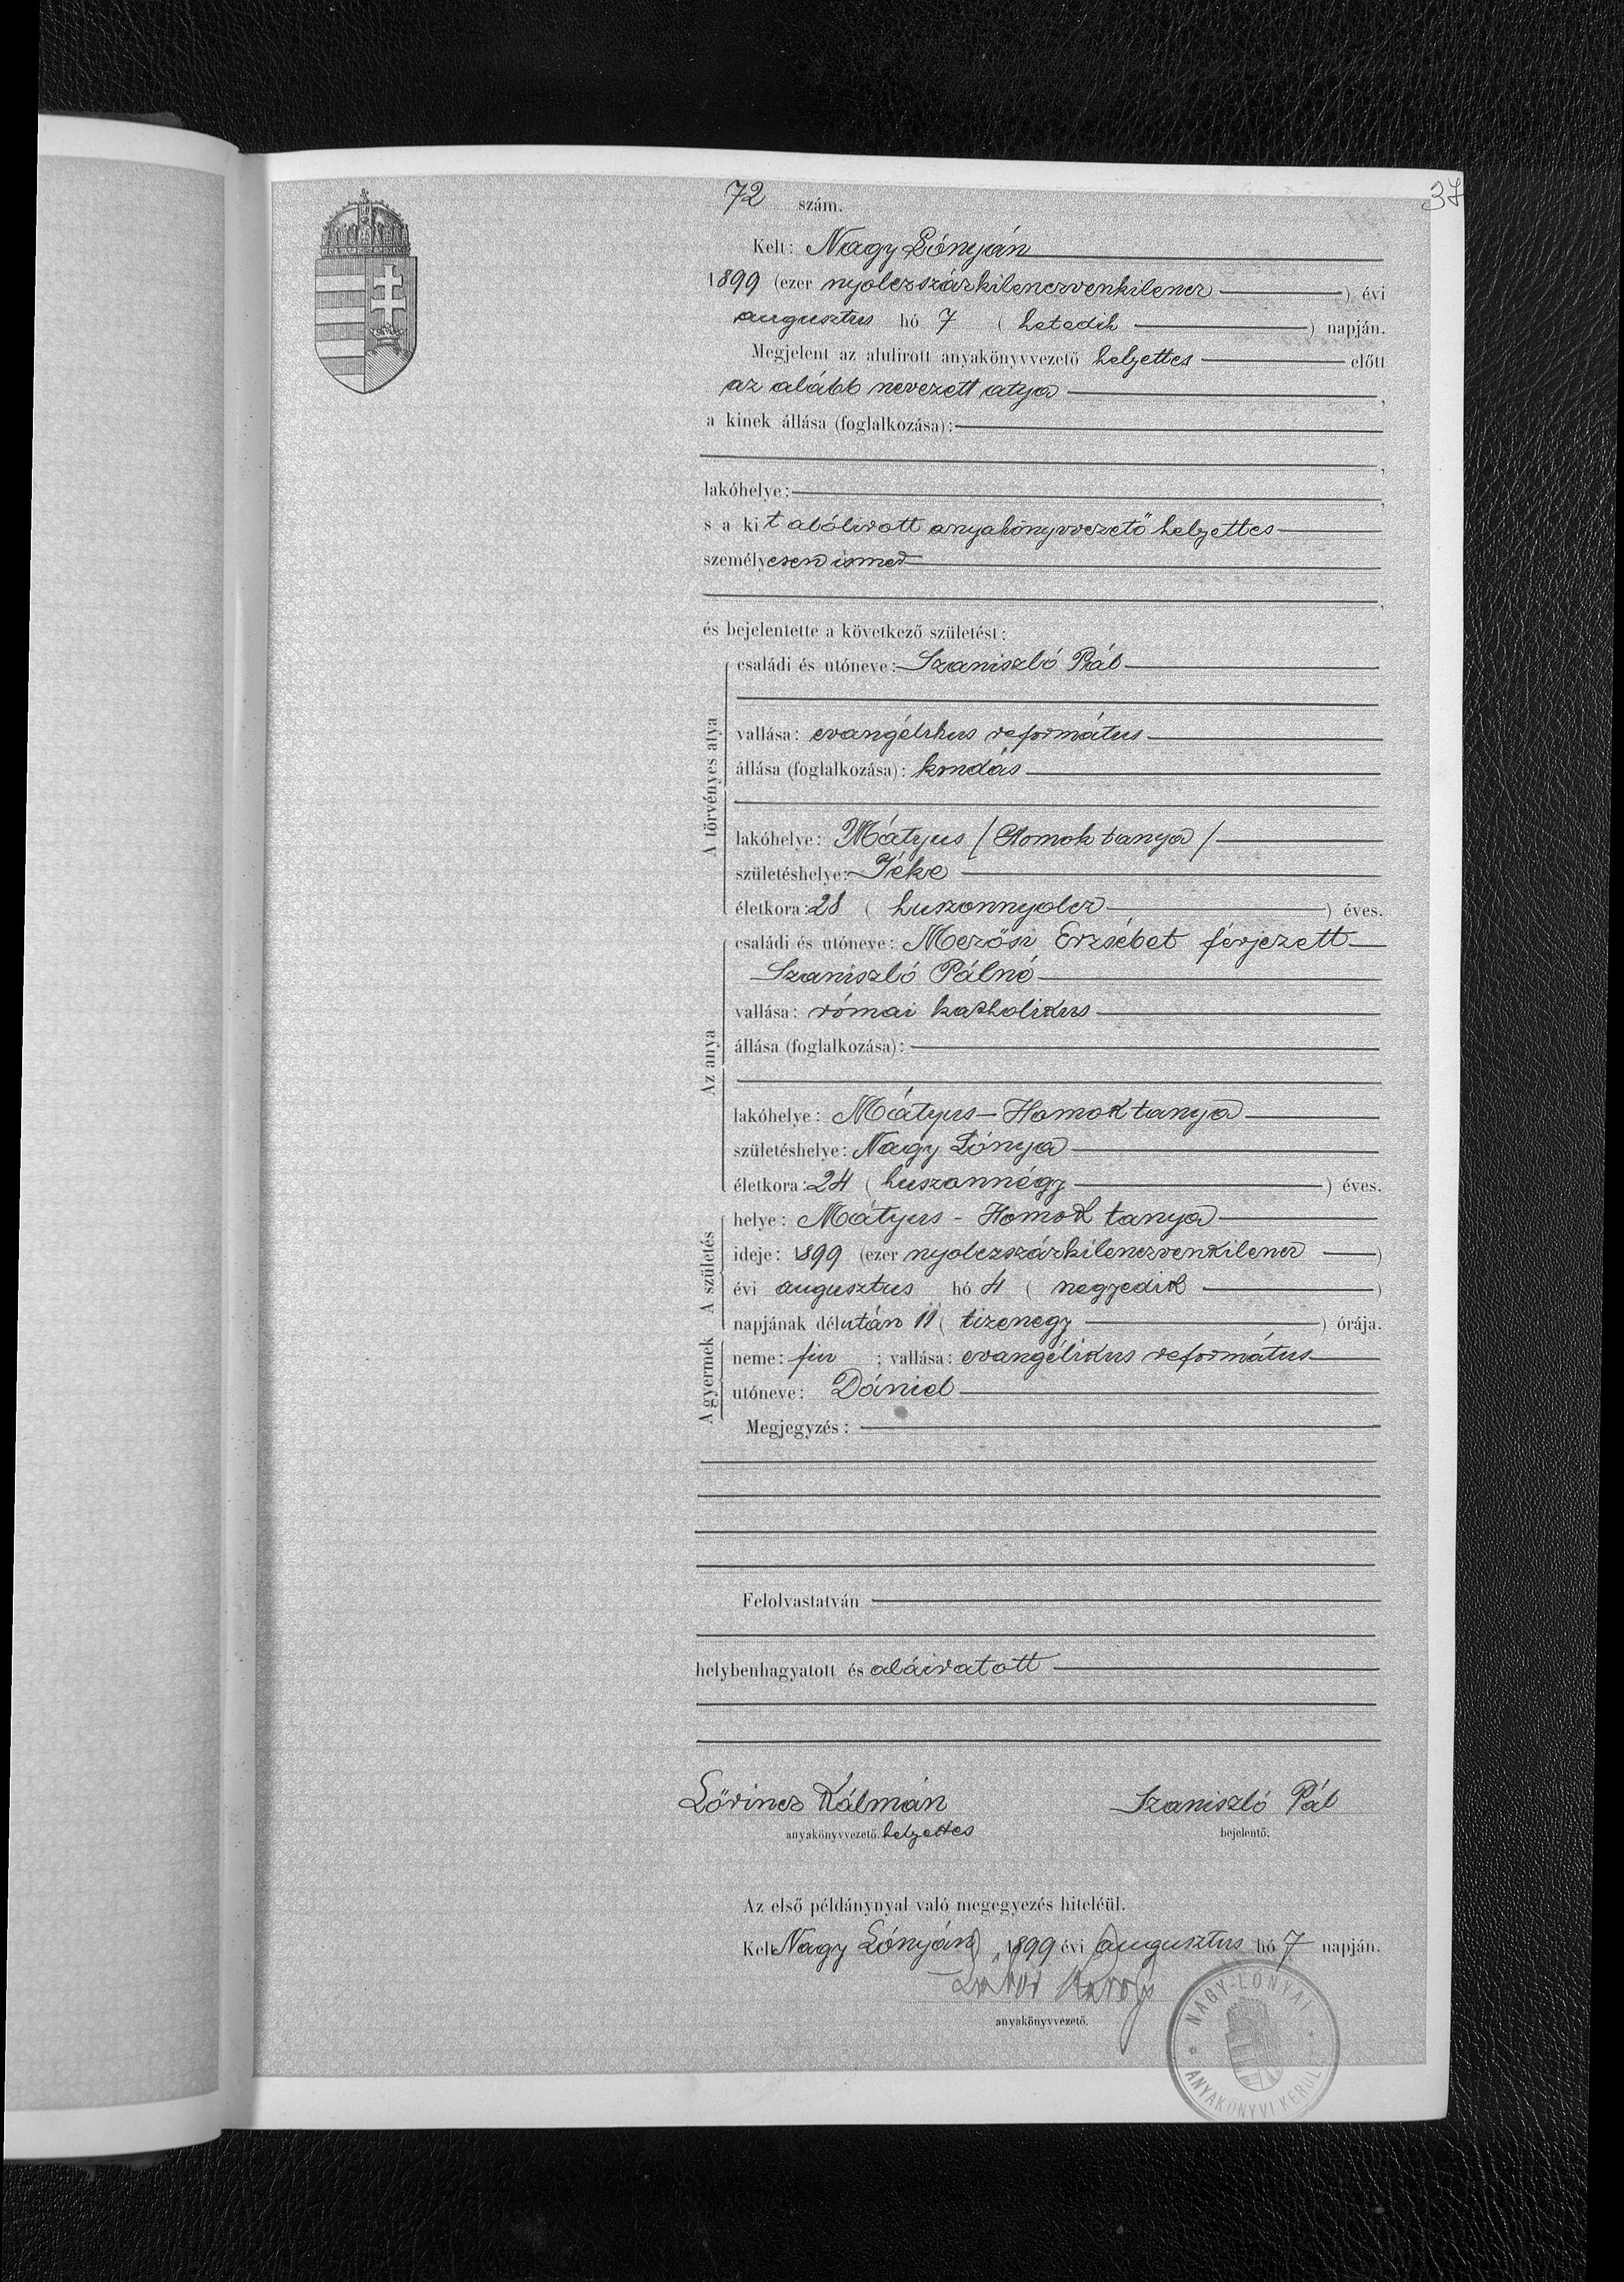 37
72 szám.
Kelt: Nagy Lónyán
1899 (ezer nyolczszázkilenczvenkilencz) évi
augusztus hó 7 (hetedik) napján.
Megjelent az alulirott anyakönyvvezető helyettes előtt
az alább nevezett atya,
a kinek állása (foglalkozása):
,
lakóhelye:,
s a kit alólirott anyakönyvvezető helyettes
személyesen ismer
,
és bejelentette a következő születést:
A törvényes atya
családi és utóneve: Szaniszló Pál
vallása: evangélikus református
állása (foglalkozása): kondás
lakóhelye: Mátyus / Homok tanya /
születéshelye: Jéke
életkora: 28 (huszonnyolcz) éves.
Az anya
családi és utóneve: Mezősi Erzsébet férjezett
Szaniszló Pálné
vallása: római katholikus
állása (foglalkozása):
lakóhelye: Mátyus - Homok tanya
születéshelye: Nagy Lónya
életkora: 24 (huszonnégy) éves.
A születés
helye: Mátyus - Homok tanya
ideje: 1899 (ezer nyolczszázkilenczvenkilencz)
évi augusztus hó 4 (negyedik)
napjának délután 11 (tizenegy) órája.
A gyermek
neme: fiu; vallása: evangélikus református
utóneve: Dániel
Megjegyzés:
Felolvastatván
helybenhagyatott és aláiratott
Lőrincz Kálmán Szaniszló Pál
anyakönyvvezető helyettes bejelentő.
Az első példánynyal való megegyezés hiteléül.
Kelt Nagy Lónyán, 1899 évi augusztus hó 7 napján.
anyakönyvvezető.
NAGY-LÓNYAI
ANYAKÖNYVI KERÜL